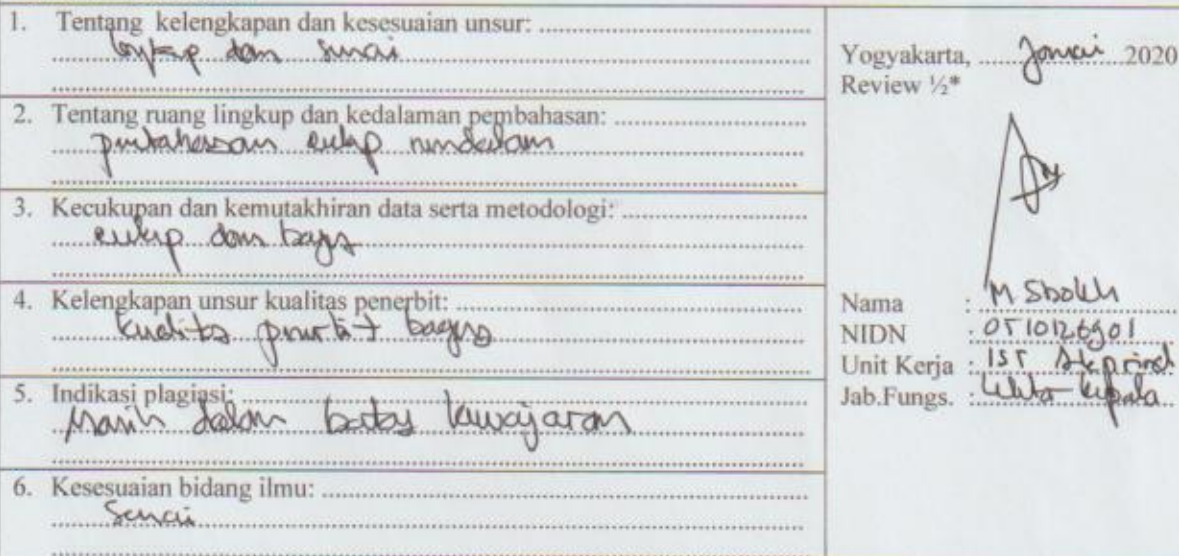 1. Tentang kelengkapan dan kesesuaian unsur:
lengkap dan sesuai
2. Tentang ruang lingkup dan kedalaman pembahasan:
pembahasan cukup mendalam
3. Kecukupan dan kemutakhiran data serta metodologi:
cukup dan bagus
4. Kelengkapan unsur kualitas penerbit:
kualitas penerbit bagus
5. Indikasi plagiasi:
Masih dalam batas kewajaran
6. Kesesuaian bidang ilmu:
Sesuai
Yogyakarta, Januari 2020
Review ½*
Nama : M Sholeh
NIDN : 0510126901
Unit Kerja : IST Akprind
Jab.Fungs. : Lektor Kepala